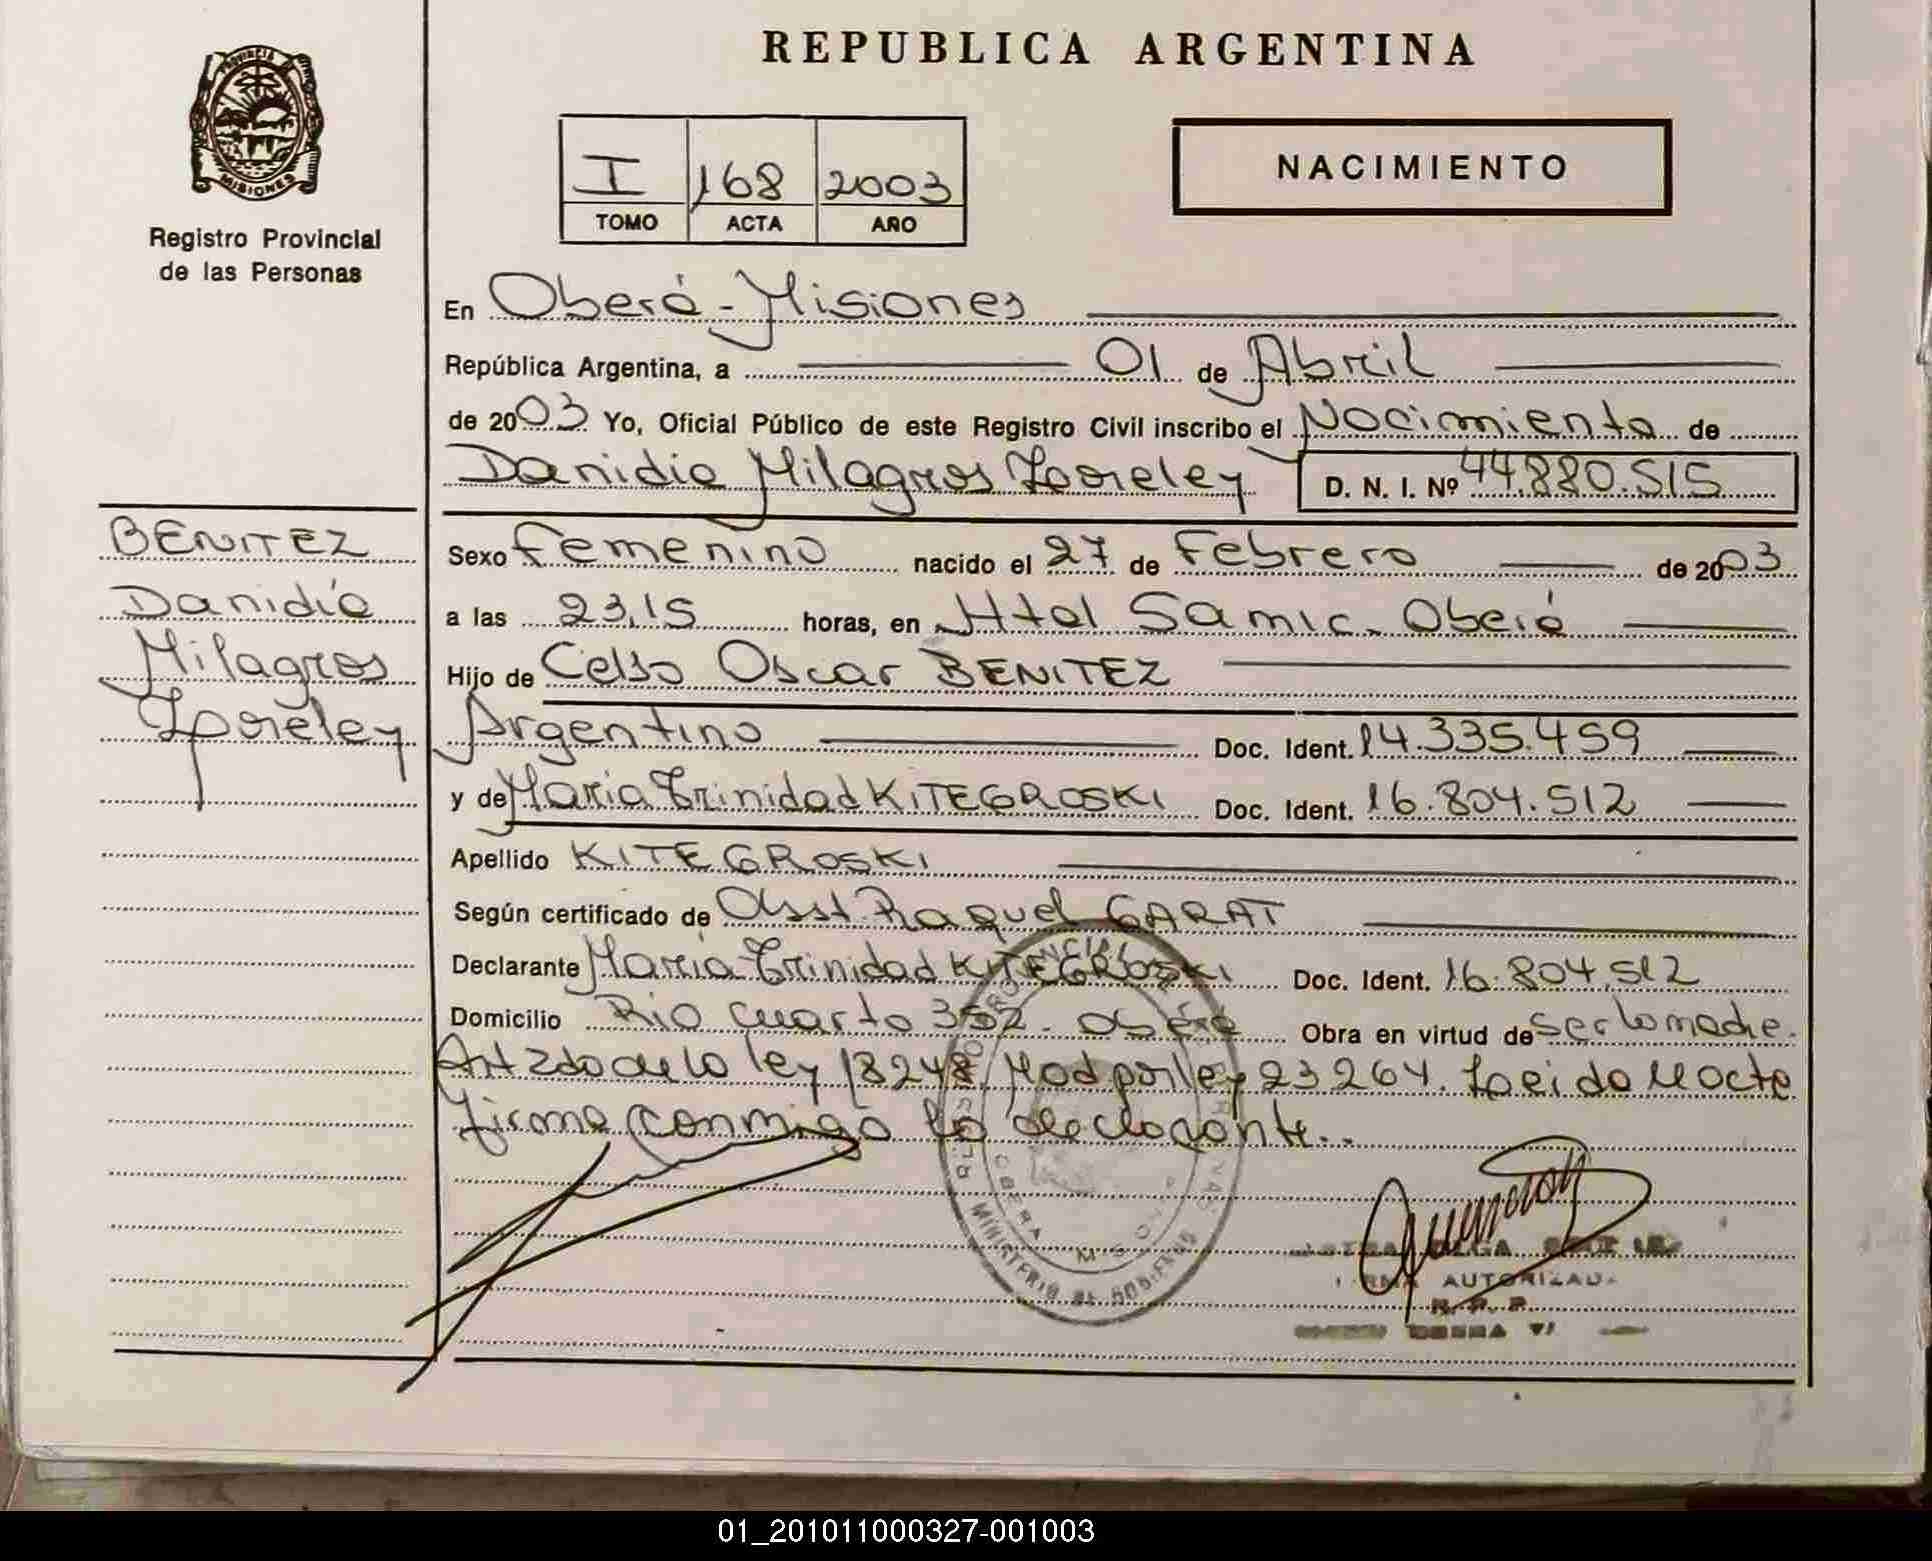 REPUBLICA ARGENTINA
PROVINCIA DE
MISIONES
Registro Provincial
de las Personas
I 168 2003
TOMO ACTA AÑO
NACIMIENTO
En Oberá - Misiones
República Argentina, a 01 de Abril
de 2003 Yo, Oficial Público de este Registro Civil inscribo el Nacimiento de
Danidia Milagros Loreley D. N. I. Nº 44.880.515
BENITEZ
Danidia
Milagros
Loreley
Sexo Femenino nacido el 27 de Febrero de 2003
a las 23,15 horas, en Htal Samic - Oberá
Hijo de Celso Oscar BENITEZ
Argentino Doc. Ident. 14.335.459
y de Maria Trinidad KITEGROSKI Doc. Ident. 16.804.512
Apellido KITEGROSKI
Según certificado de Obst. Raquel GARAT
Declarante Maria Trinidad KITEGROSKI Doc. Ident. 16.804.512
Domicilio Rio Cuarto 352 - Oberá Obra en virtud de ser la madre.
Art 2do de la ley 18248, Mod por ley 23264. Leida el acta
firma conmigo la declarante..
MINISTERIO DE GOBIERNO
OBERA
OLGA
FIRMA AUTORIZADA
R. P. P.
01_201011000327-001003